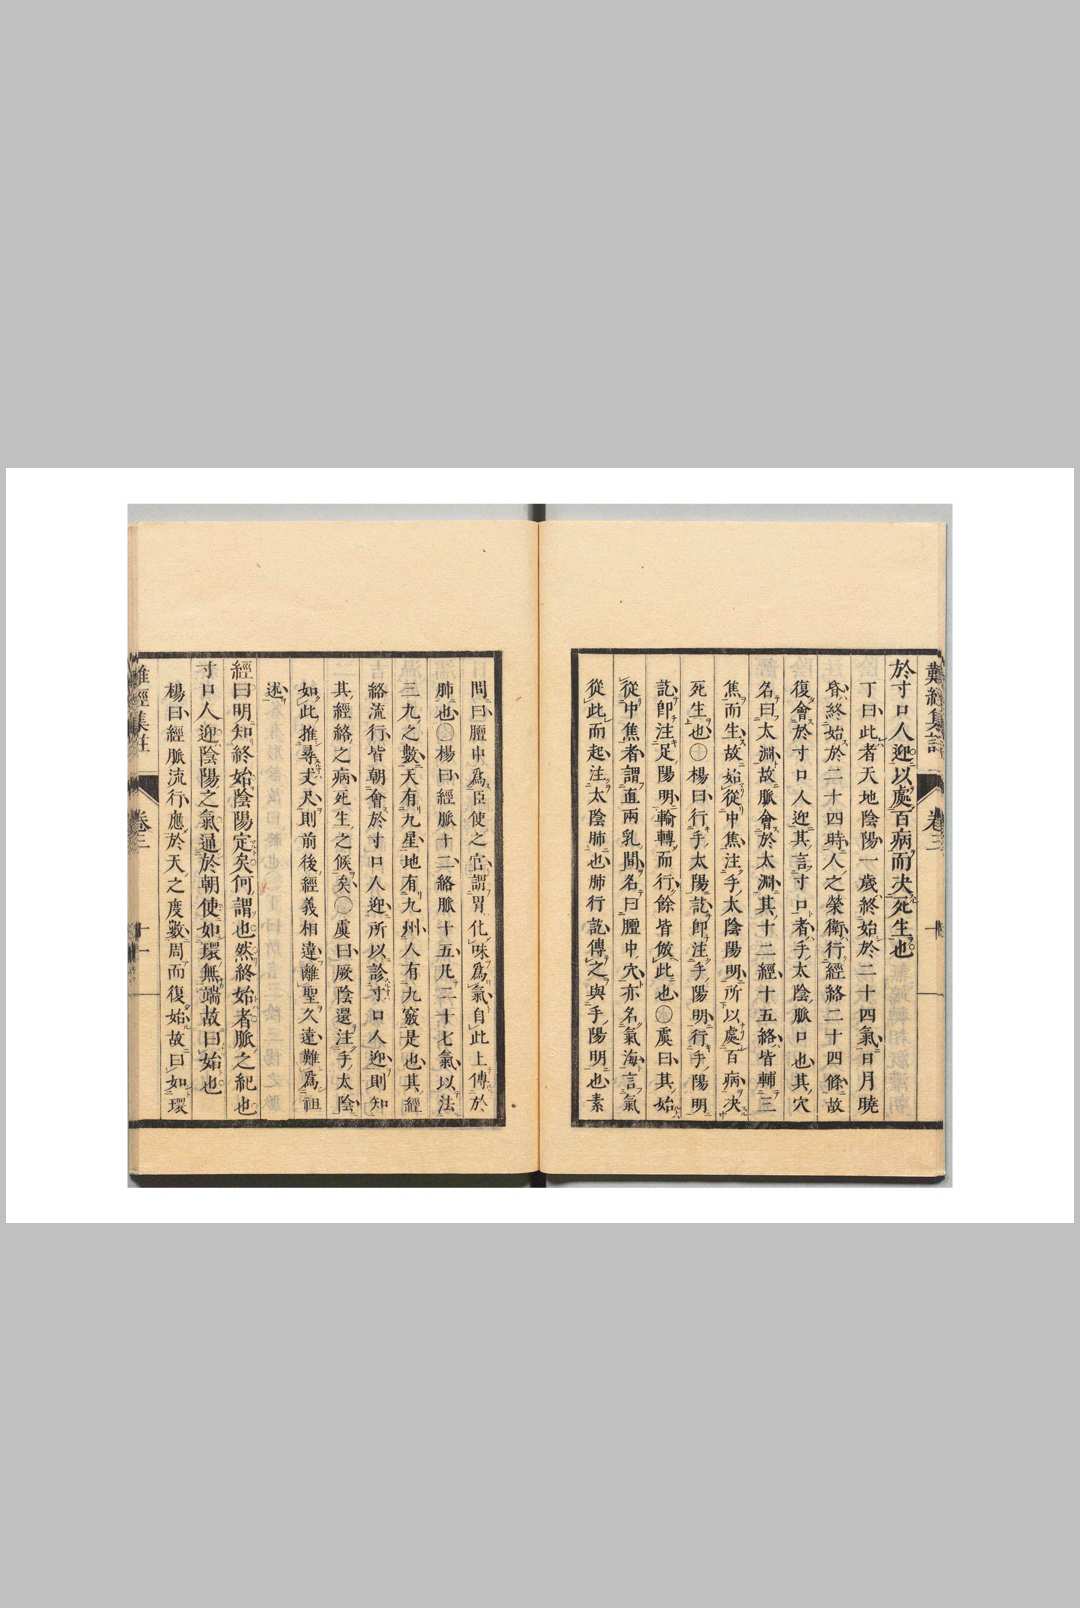 難經集註
卷三
十
於寸口人迎以處百病而決死生也
丁曰此者天地陰陽一歲終始於二十四氣日月曉
昏終始於二十四時人之榮衛行經絡二十四條故
復會於寸口人迎其言寸口者手太陰脈口也其穴
名曰太淵故脈會於太淵其十二經十五絡皆輔三
焦而生故始從中焦注手太陰陽明所以處百病決
死生也 楊曰行手太陽訖即注手陽明行手陽明
訖即注足陽明輪轉而行餘皆倣此也 虞曰其始
從中焦者謂直兩乳間名曰膻中穴亦名氣海言氣
從此而起注太陰肺也肺行訖傳之與手陽明也素
問曰膻中為臣使之官謂胃化味為氣自此上傳於
肺也 楊曰經脈十二絡脈十五凡二十七氣以法
三九之數天有九星地有九州人有九竅是也其經
絡流行皆朝會於寸口人迎所以診寸口人迎則知
其經絡之病死生之候矣 虞曰厥陰還注手太陰
如此推尋丈尺則前後經義相違離聖久遠難為祖
述
經曰明知終始陰陽定矣何謂也然終始者脈之紀也
寸口人迎陰陽之氣通於朝使如環無端故曰始也
楊曰經脈流行應於天之度數周而復始故曰如環
難經集註
卷三
十一